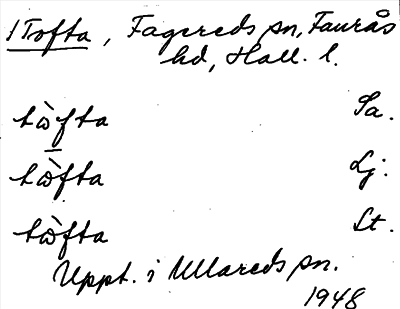 1 Tofta, Fagereds sn, Faurås
hd, Hall. l.
tὼfta Sa.
tὼfta Lj.
tὼfta St.
Uppt. i Ullareds sn.
1948